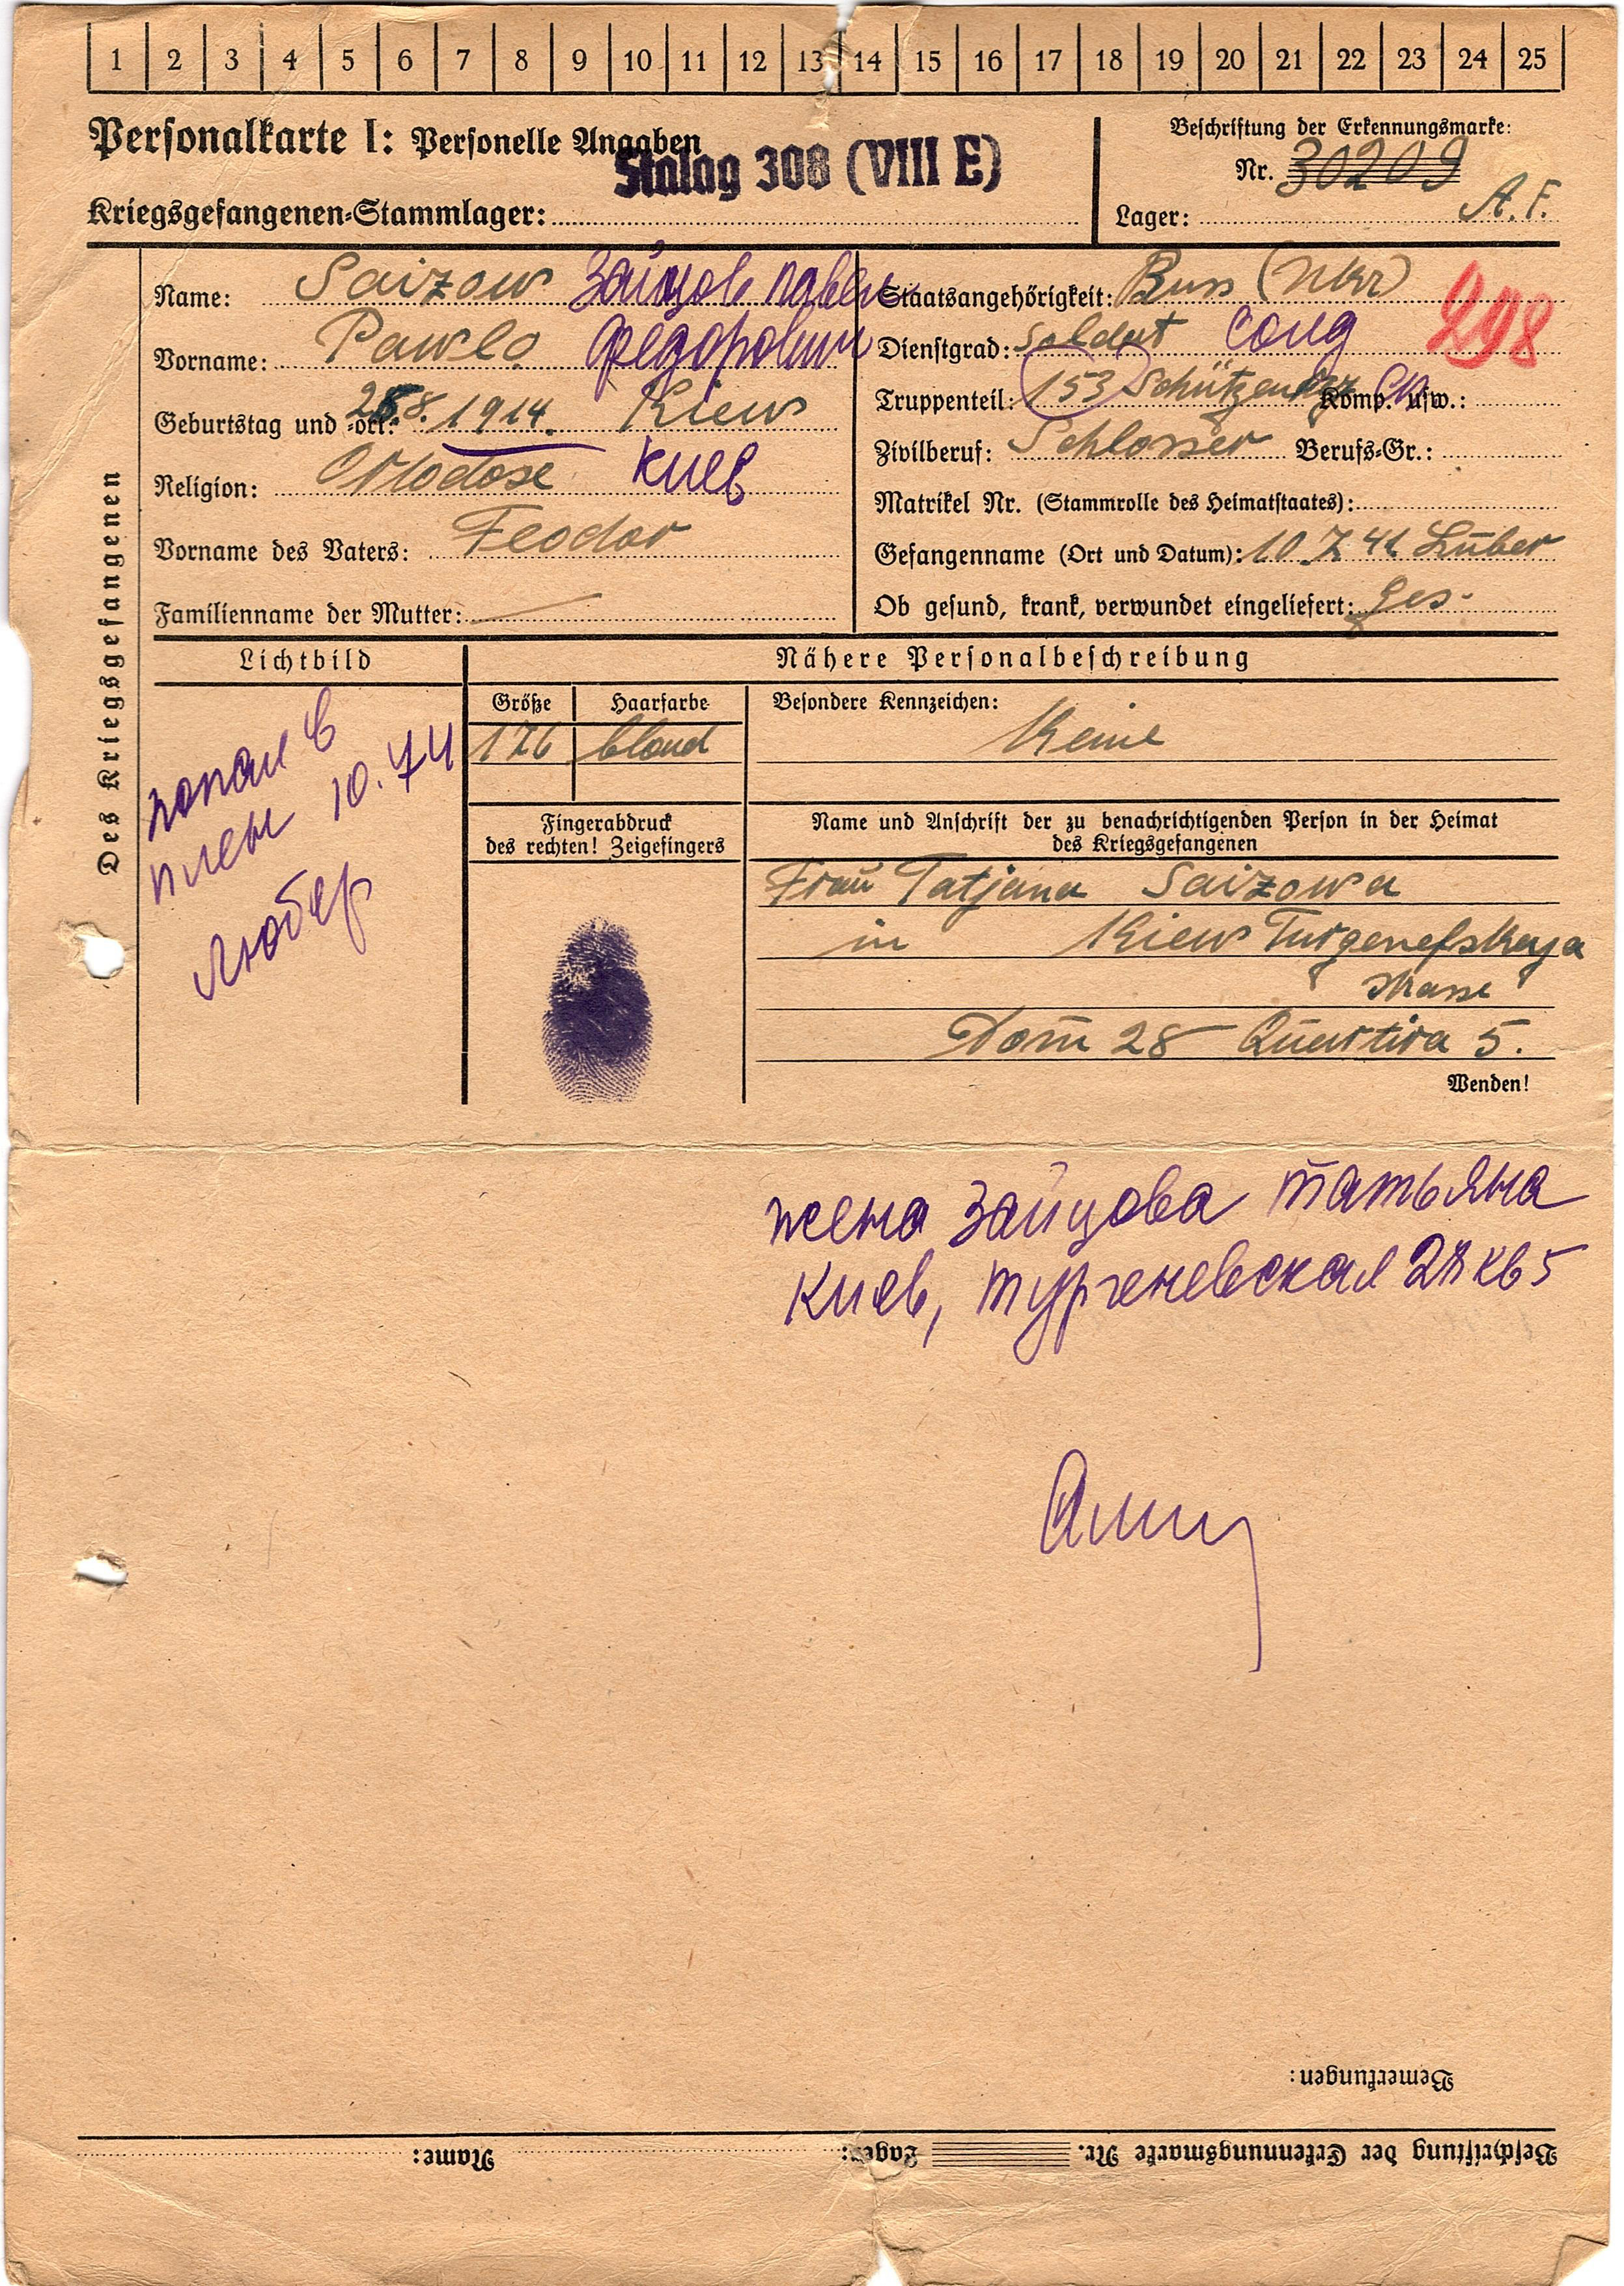 1 2 3 4 5 6 7 8 9 10 11 12 13 14 15 16 17 18 19 20 21 22 23 24 25
Personalkarte I: Personelle Angaben
Stalag 308 (VIII E)
Kriegsgefangenen-Stammlager:
Beschriftung der Erkennungsmarke:
Nr. 30209
Lager: A. F.
Des Kriegsgefangenen
Name: Saizow Зайцов Павел
Vorname: Pawlo Федорович
Geburtstag und -ort: 8. 1914. Kiew
Religion: Ortodose Киев
Vorname des Vaters: Feodor
Familienname der Mutter:
Staatsangehörigkeit: Russ (Ukr)
298
Dienstgrad: Soldat Солд
Truppenteil: 153 Schützen Komp. usw.:
Zivilberuf: Schlosser Berufs-Gr.:
Matrikel Nr. (Stammrolle des Heimatstaates):
Gefangenname (Ort und Datum): 10.7.41. Luber
Ob gesund, krank, verwundet eingeliefert: ges.
Lichtbild
попал в
плен 10.7 41
Любер
Nähere Personalbeschreibung
Größe Haarfarbe Besondere Kennzeichen:
176 blond Keine
Fingerabdruck
des rechten! Zeigefingers
Name und Anschrift der zu benachrichtigenden Person in der Heimat
des Kriegsgefangenen
Frau Tatjana Saizowa
in Kiew Turgenefskaja
strasse
Dom 28 Quartira 5.
Wenden!
жена Зайцова Татьяна
Киев, Тургеневская 28 кв 5
Bemerkungen:
Beschriftung der Erkennungsmarke Nr. Lager: Name: